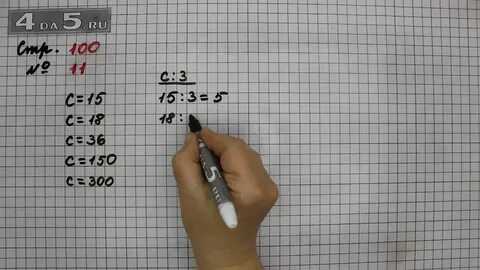 4 DA 5.RU
Стр. 100
№ 11
c=15
c=18
c=36
c=150
c=300
c:3
15:3=5
18:
5